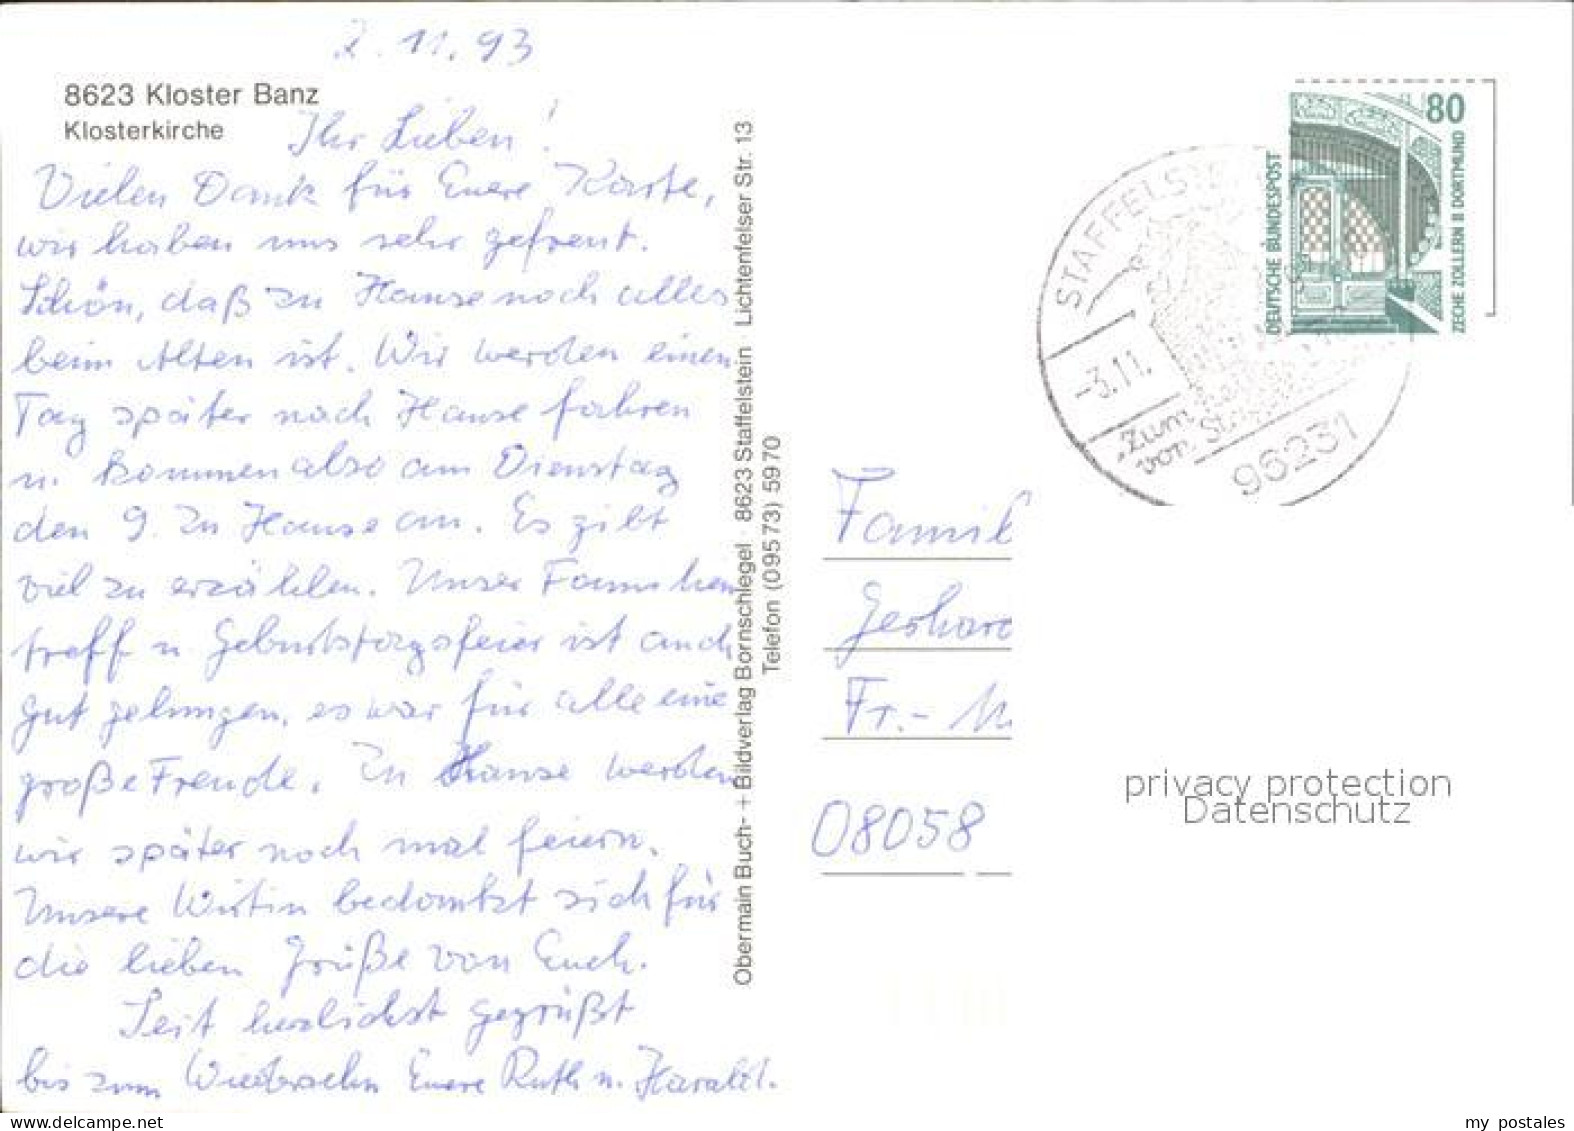 2.11.93
8623 Kloster Banz
Klosterkirche
Ihr Lieben!
Vielen Dank für Euere Karte,
wir haben uns sehr gefreut.
Schön, daß zu Hause noch alles
beim Alten ist. Wir werden einen
Tag später nach Hause fahren
u. kommen also am Dienstag
den 9. zu Hause an. Es gibt
viel zu erzählen. Unser
treff u Geburtstagsfeier ist auch
gut gelungen, es war für alle eine
große Freude. Zu Hause werden
wir später noch mal feiern.
Unsere Wirtin bedankt sich für
die lieben Grüße von Euch.
Seit herzlichst gegrüßt
bis zum Wiedersehn Euere Ruth u. Harald.
Obermain Buch- + Bildverlag Bornschlegel · 8623 Staffelstein · Lichtenfelser Str. 13
Telefon (09573) 5970
80
DEUTSCHE BUNDESPOST
ZECHE ZOLLERN II DORTMUND
STAFFELSTE
-3.11.
Zum
von
96231
Famil
Gerhard
Fr.-
08058
privacy protection
Datenschutz
my postales